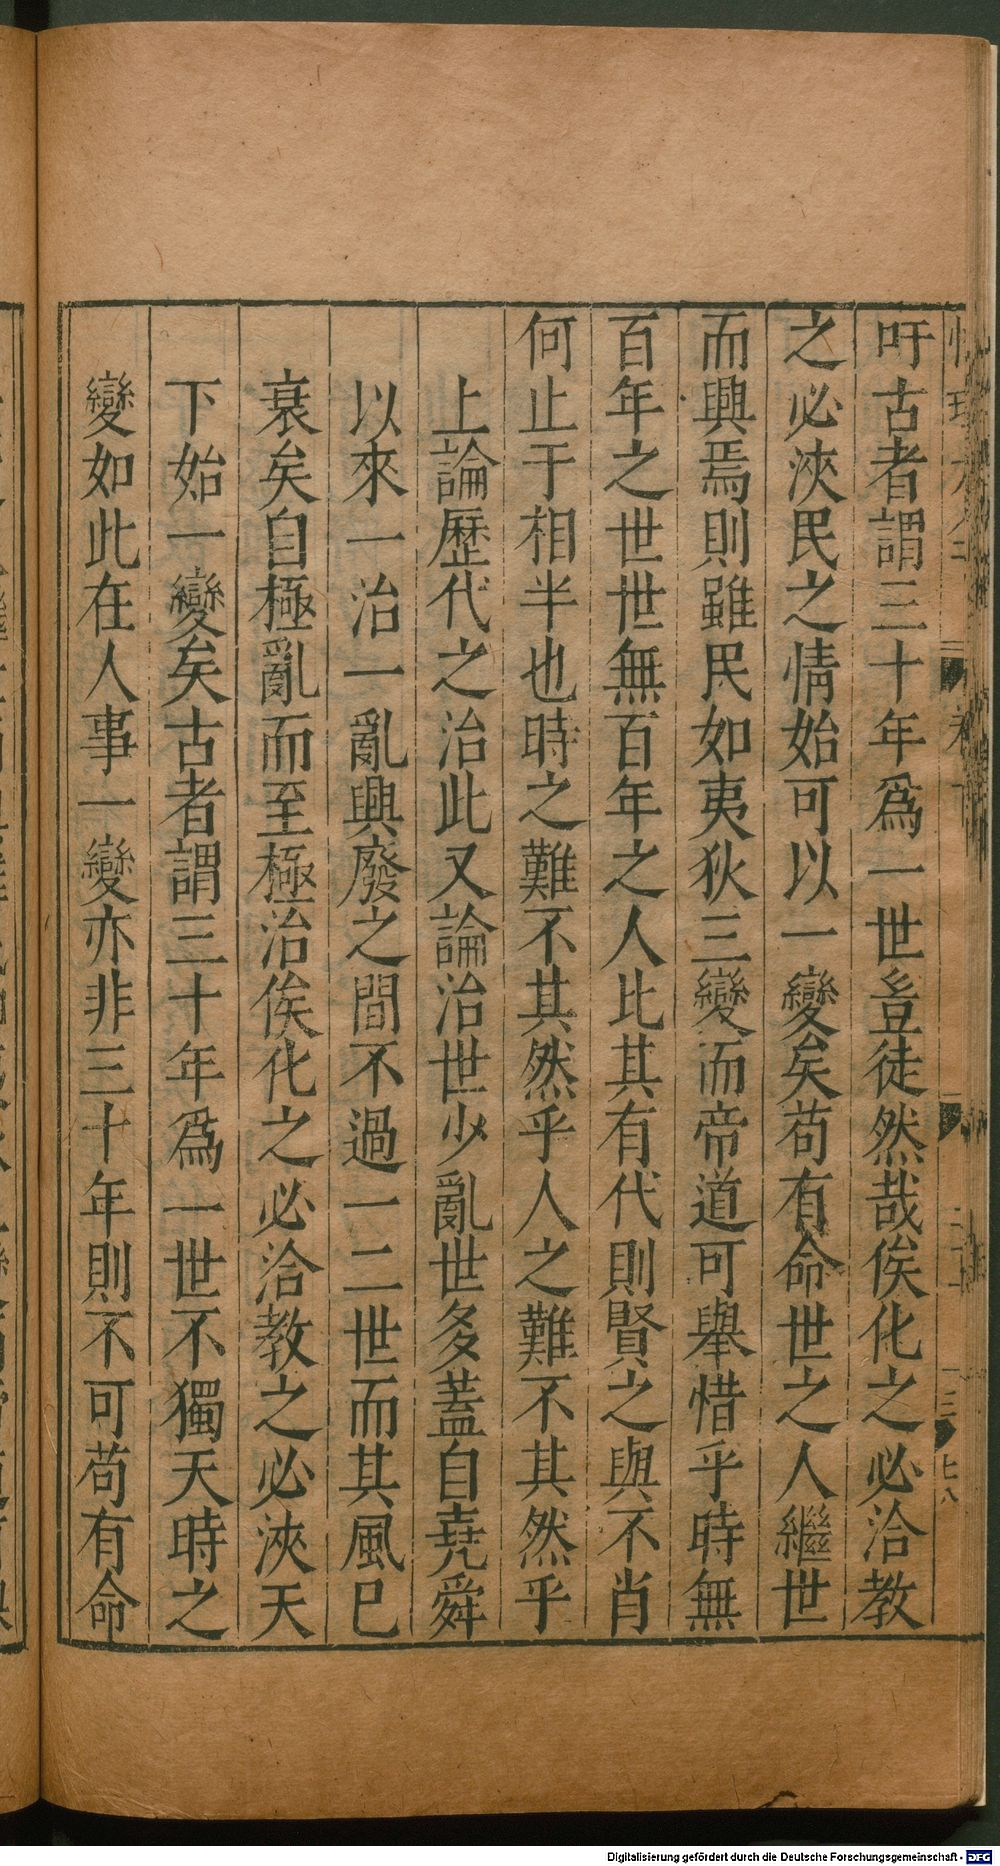 吁古者謂三十年爲一世豈徒然哉俟化之必洽教
之必浹民之情始可以一變矣苟有命世之人繼世
而興焉則雖民如夷狄三變而帝道可舉惜乎時無
百年之世世無百年之人比其有代則賢之與不肖
何止于相半也時之難不其然乎人之難不其然乎
上論歷代之治此又論治世少亂世多蓋自堯舜
以來一治一亂興廢之間不過一二世而其風已
衰矣自極亂而至極治俟化之必洽教之必浹天
下始一變矣古者謂三十年爲一世不獨天時之
變如此在人事一變亦非三十年則不可苟有命
Digitalisierung gefördert durch die Deutsche Forschungsgemeinschaft - DFG